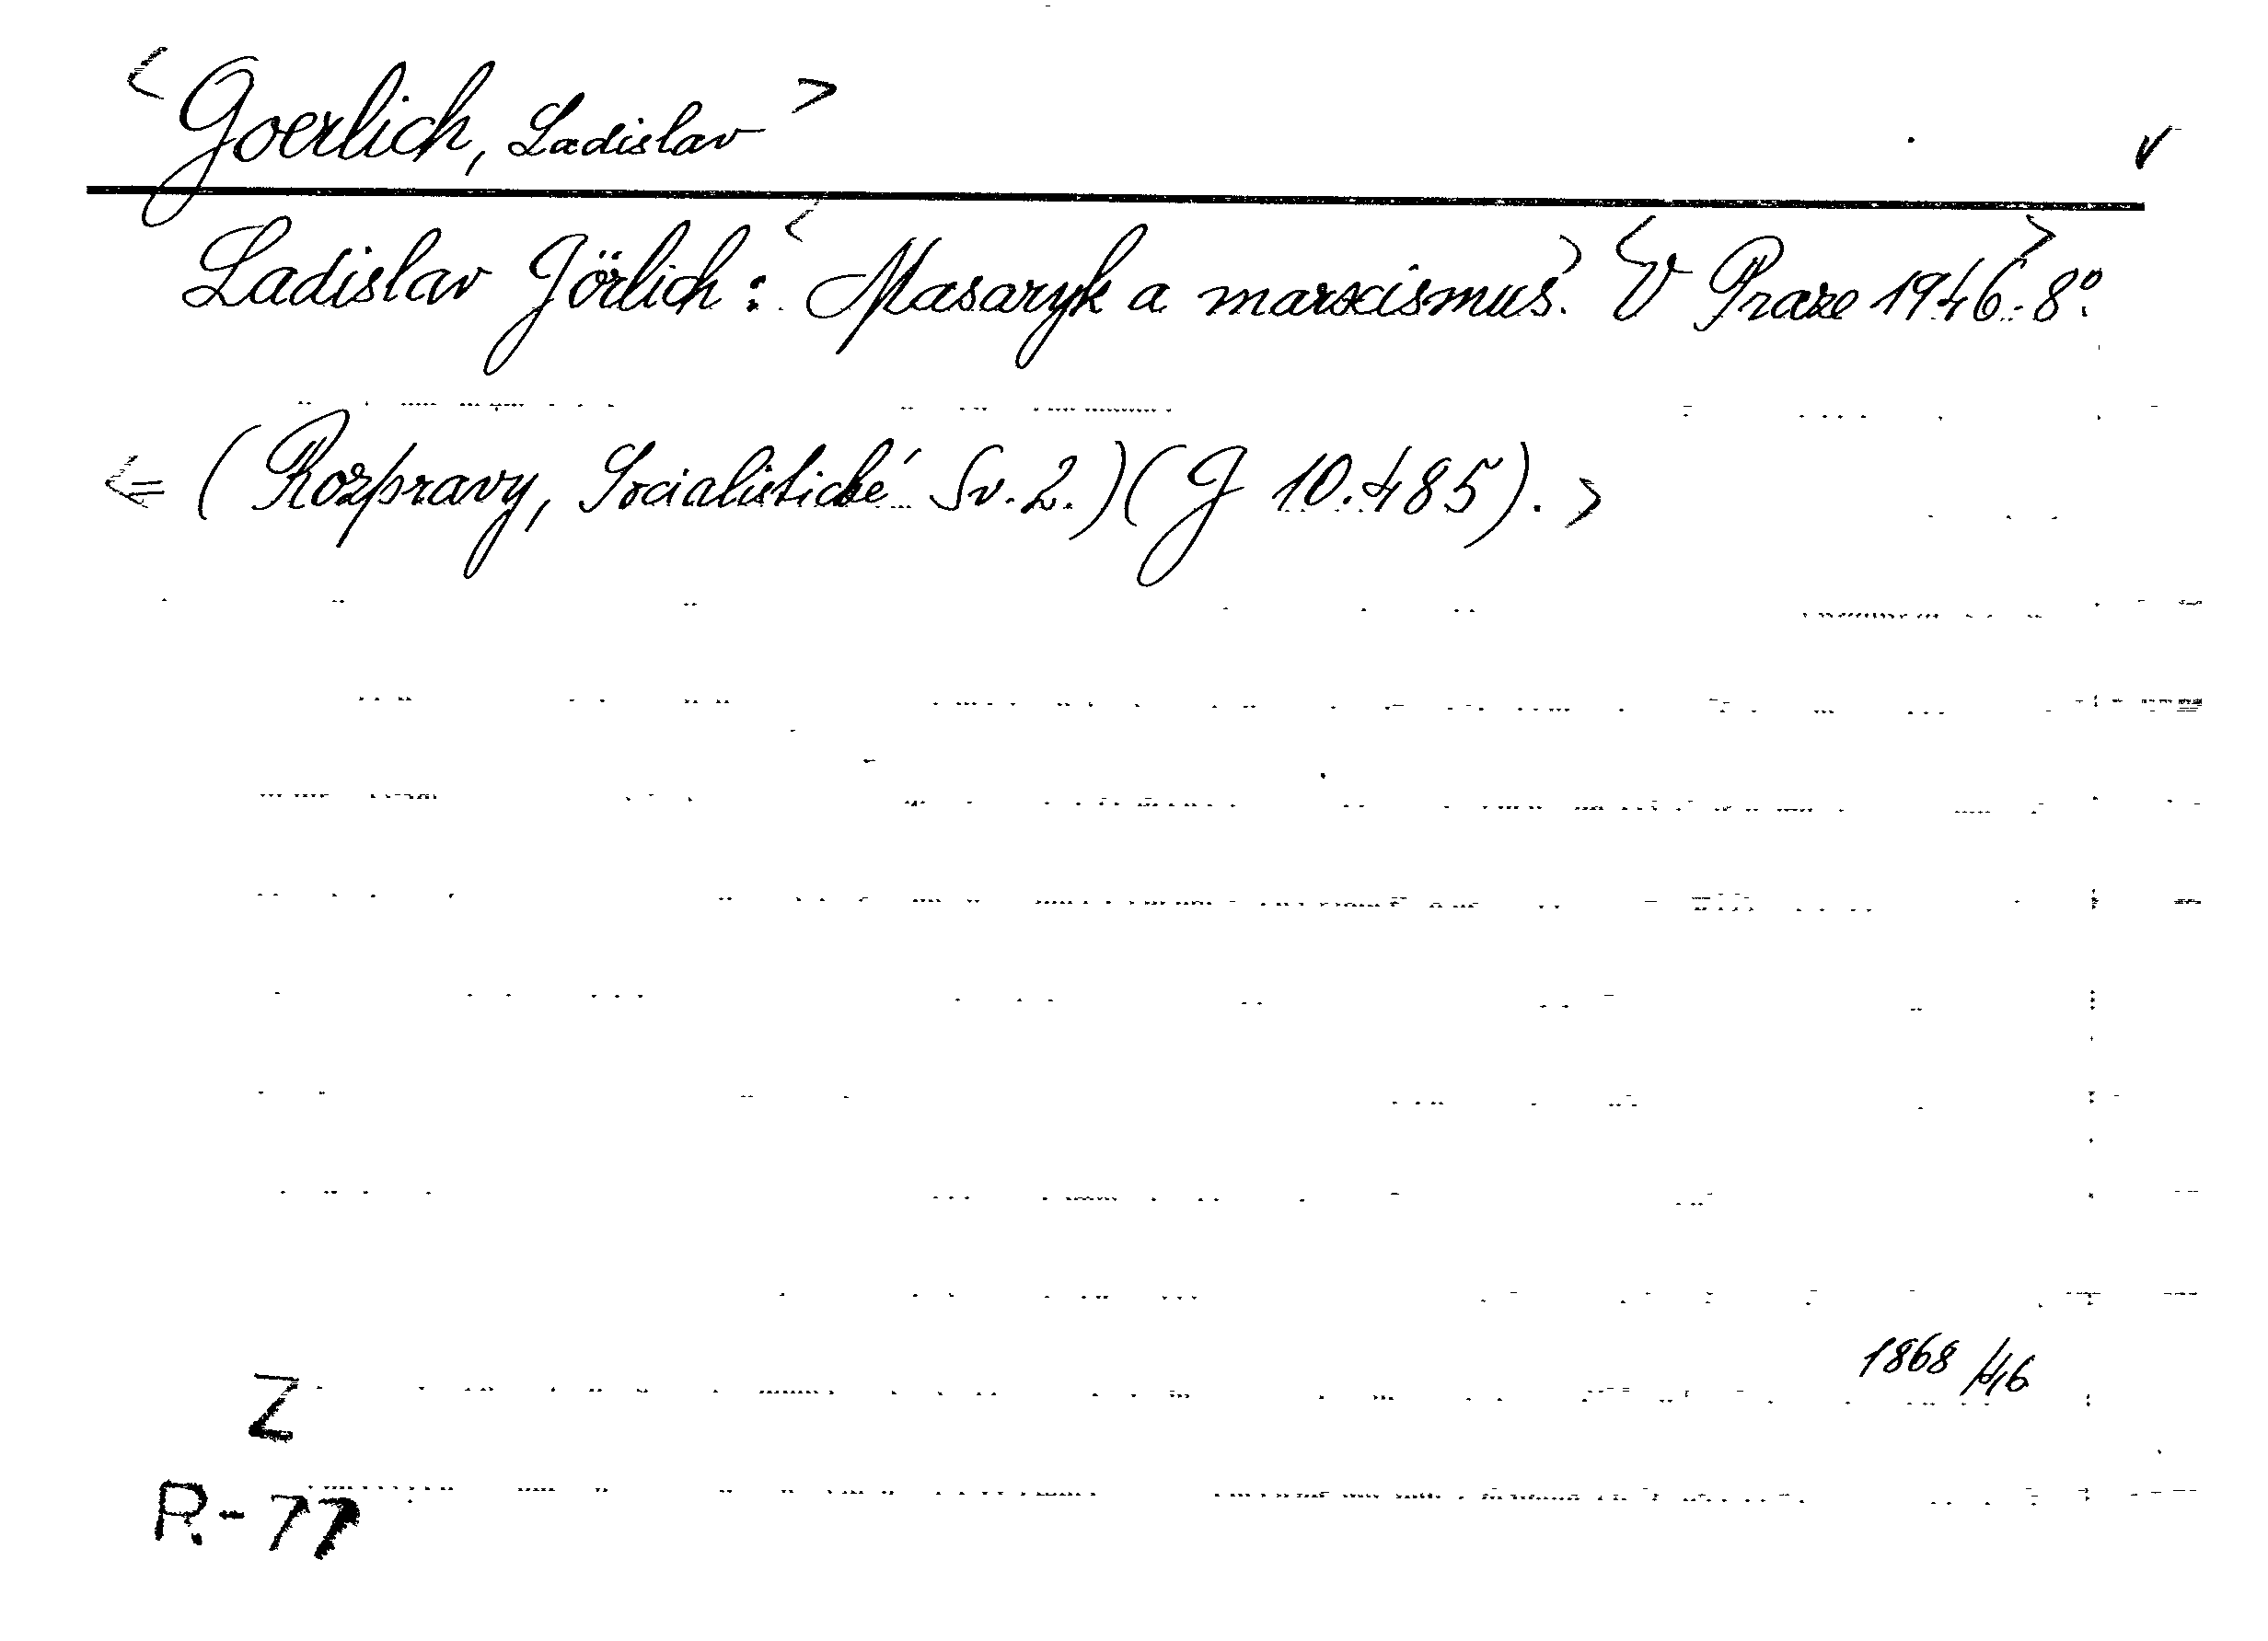 <Goerlich, Ladislav> ✓
Ladislav Görlich: <Masaryk a marxismus.> <V Praze 1946.> 8°.
<= (Rozpravy, Socialistické Sv. 2.) (G 10.485). >
1868/46
Z
R-77